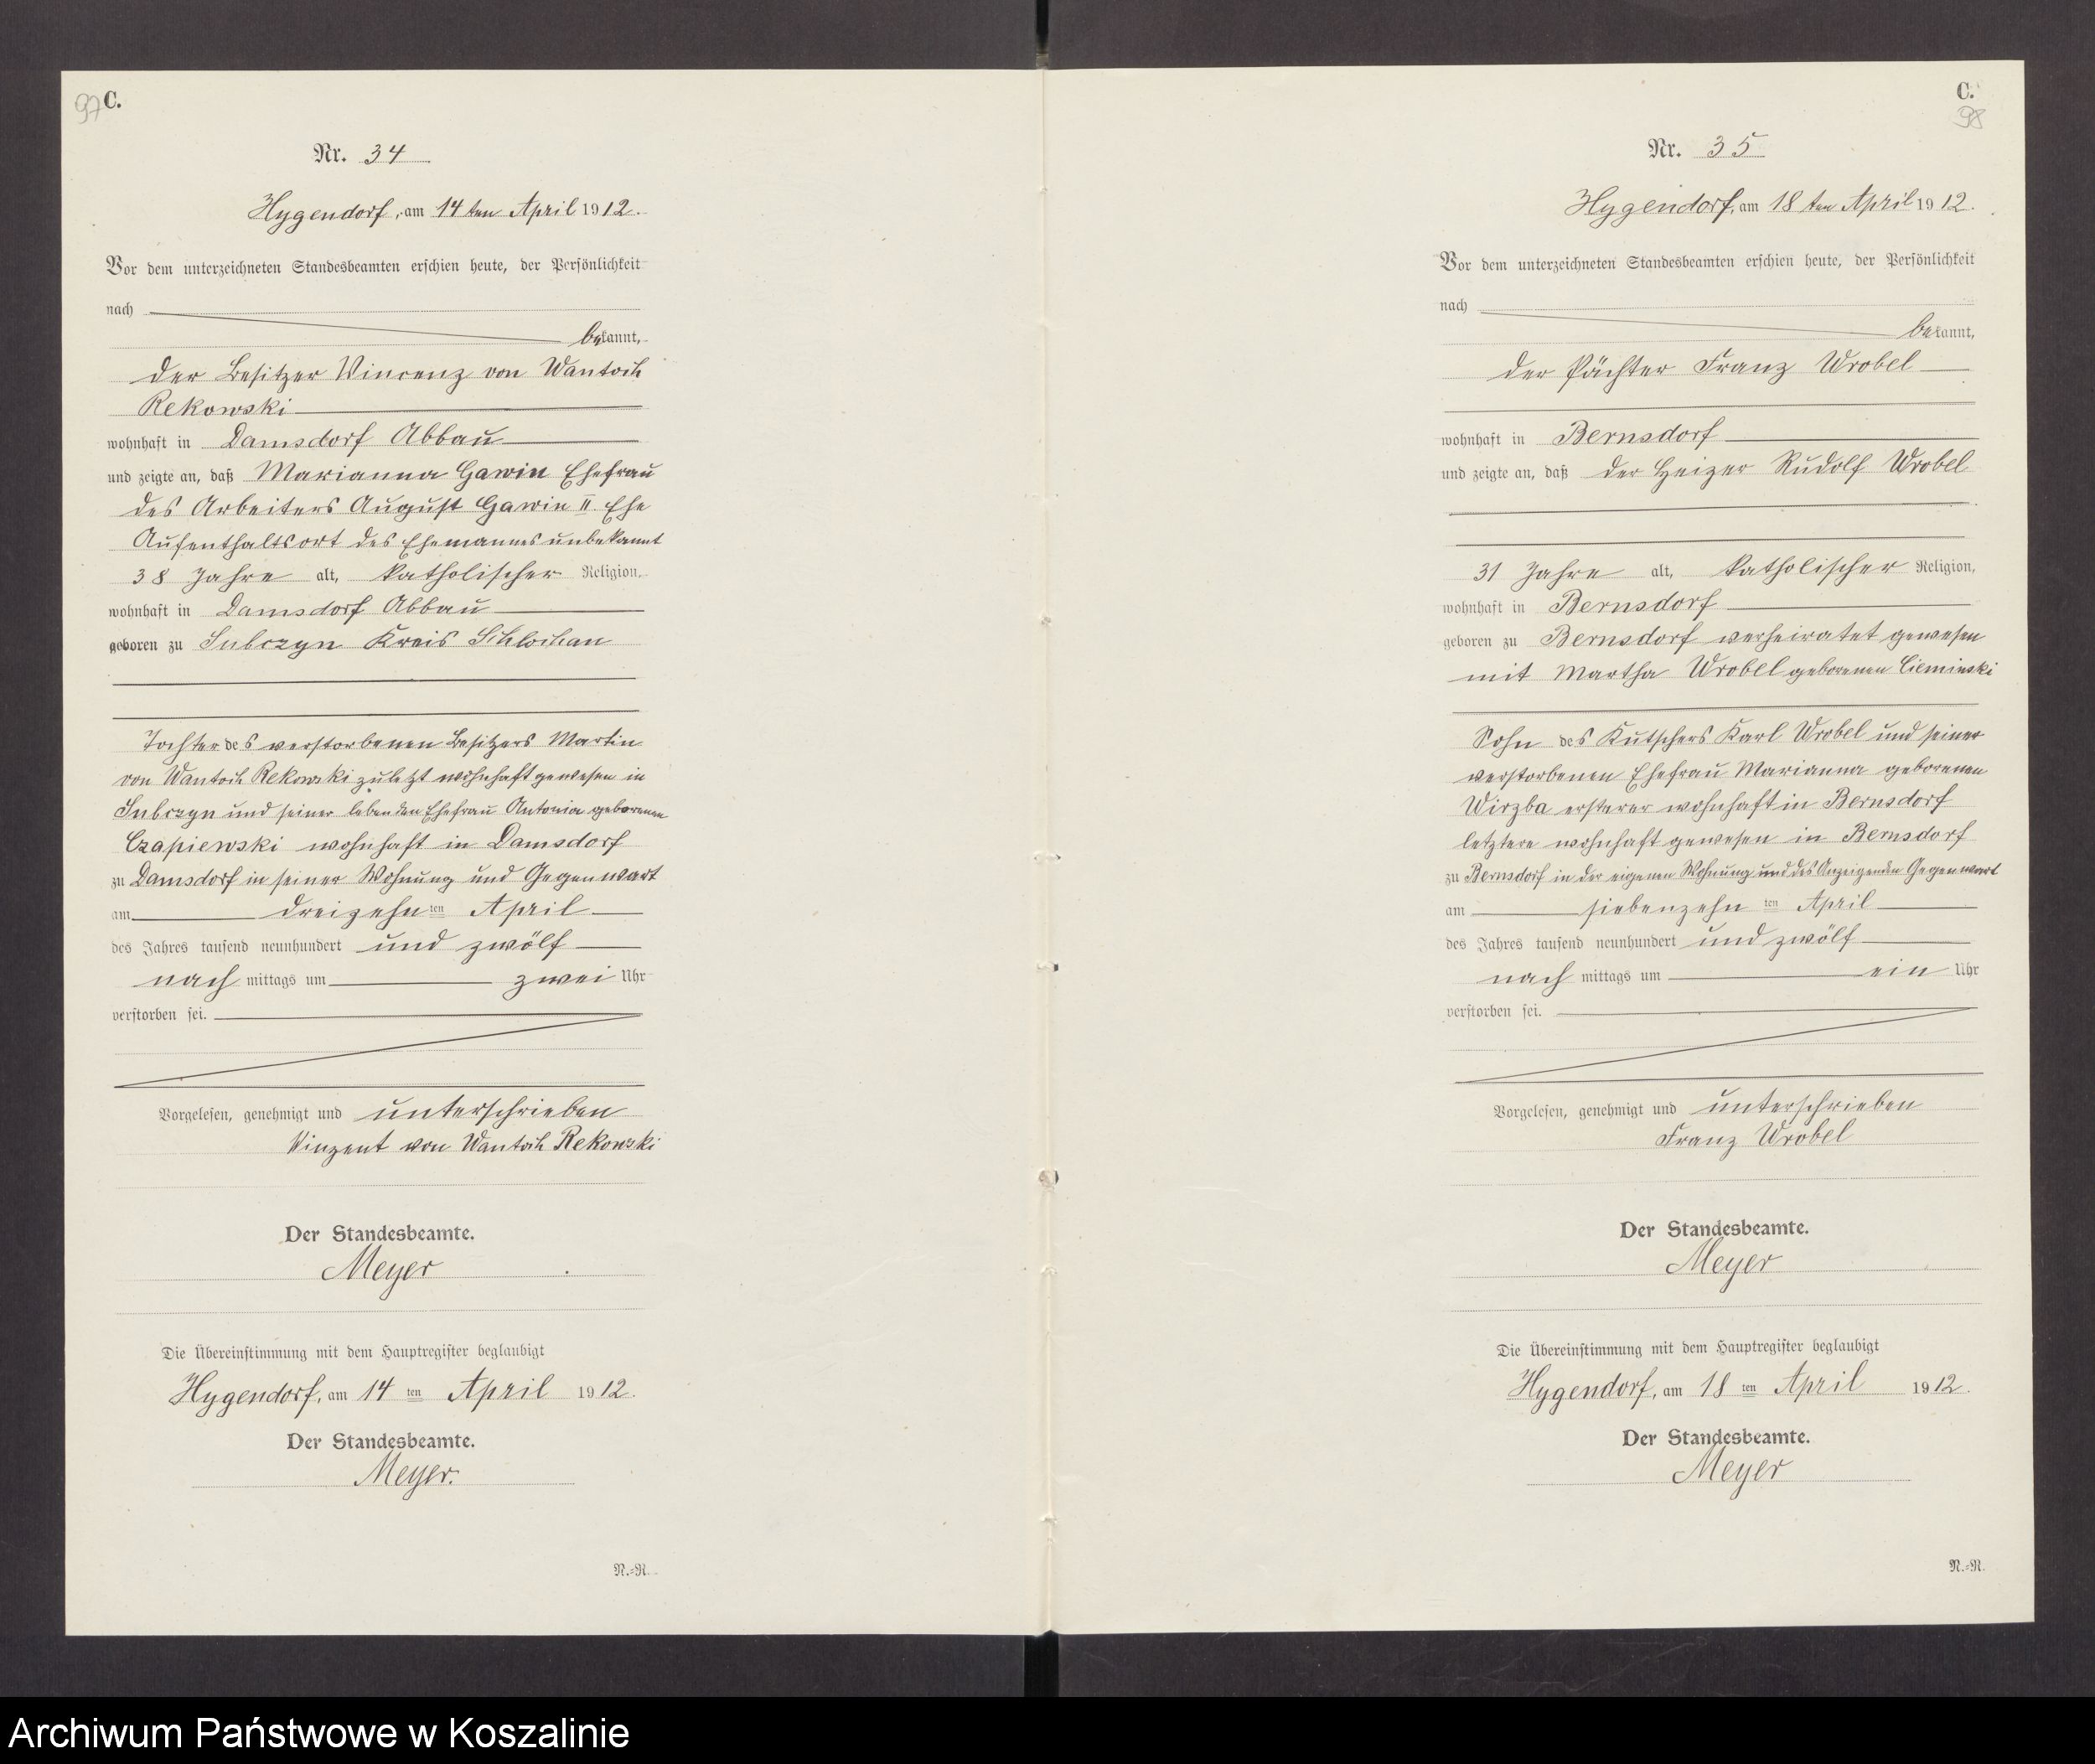 97 C.
Nr. 34
Hygendorf, am 14ten April 1912.
Vor dem unterzeichneten Standesbeamten erschien heute, der Persönlichkeit
nach
bekannt,
der Besitzer Vincenz von Wantoch
Rekowski
wohnhaft in Damsdorf Abbau
und zeigte an, daß Marianna Gawin Ehefrau
des Arbeiters August Gawin II. Ehe
Aufenthaltsort des Ehemannes unbekannt
38 Jahre alt, katholischer Religion,
wohnhaft in Damsdorf Abbau
geboren zu Subczyn Kreis Schlochau
Tochter des verstorbenen Besitzers Martin
von Wantoch Rekowski zuletzt wohnhaft gewesen in
Subczyn und seiner lebenden Ehefrau Antonia geborenen
Czapiewski wohnhaft in Damsdorf
zu Damsdorf in seiner Wohnung und Gegenwart
am dreizehnten April
des Jahres tausend neunhundert und zwölf
nach mittags um zwei Uhr
verstorben sei.
Vorgelesen, genehmigt und unterschrieben
Vinzent von Wantoch Rekowski
Der Standesbeamte.
Meyer
Die Übereinstimmung mit dem Hauptregister beglaubigt
Hygendorf, am 14 ten April 1912.
Der Standesbeamte.
Meyer.
N.=R.
C.
98
Nr. 35
Hygendorf, am 18ten April 1912.
Vor dem unterzeichneten Standesbeamten erschien heute, der Persönlichkeit
nach
bekannt,
der Pächter Franz Wrobel
wohnhaft in Bernsdorf
und zeigte an, daß der Heizer Rudolf Wrobel
31 Jahre alt, katholischer Religion,
wohnhaft in Bernsdorf
geboren zu Bernsdorf verheiratet gewesen
mit Martha Wrobel geborenen Cieminski
Sohn des Kutschers Karl Wrobel und seiner
verstorbenen Ehefrau Marianna geborenen
Wirzba ersterer wohnhaft in Bernsdorf
letztere wohnhaft gewesen in Bernsdorf
zu Bernsdorf in der eigenen Wohnung und des Anzeigenden Gegenwart
am siebenzehn ten April
des Jahres tausend neunhundert und zwölf
nach mittags um ein Uhr
verstorben sei.
Vorgelesen, genehmigt und unterschrieben
Franz Wrobel
Der Standesbeamte.
Meyer
Die Übereinstimmung mit dem Hauptregister beglaubigt
Hygendorf, am 18 ten April 1912.
Der Standesbeamte.
Meyer
N.=R.
Archiwum Państwowe w Koszalinie